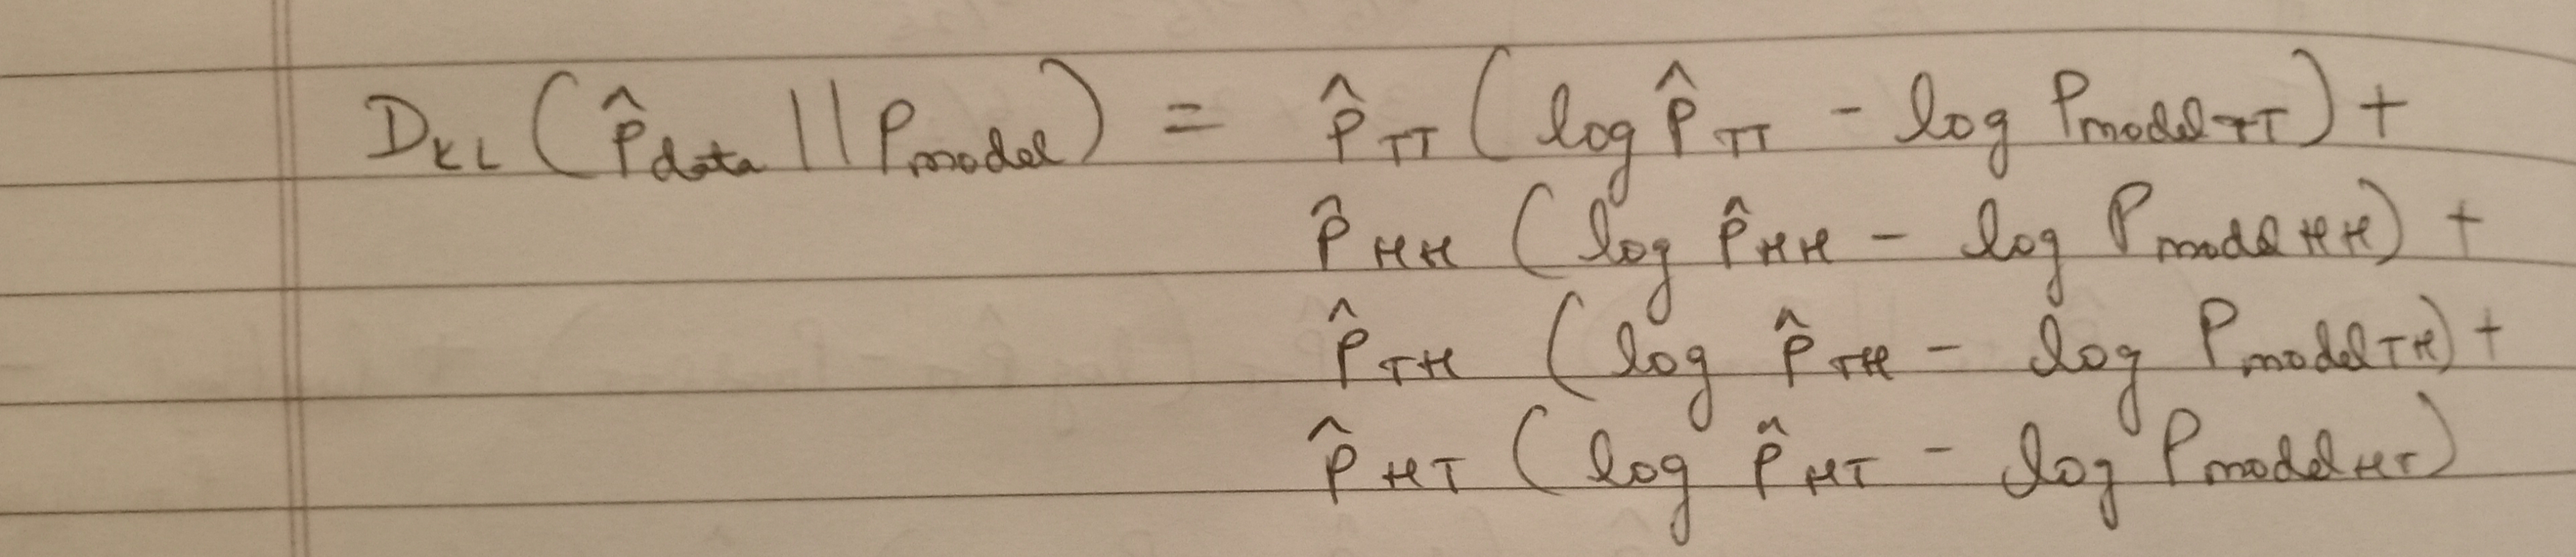 D_KL (p̂_data || P_model) = p̂_TT (log p̂_TT - log P_model TT) +
p̂_HH (log p̂_HH - log P_model HH) +
p̂_TH (log p̂_TH - log P_model TH) +
p̂_HT (log p̂_HT - log P_model HT)